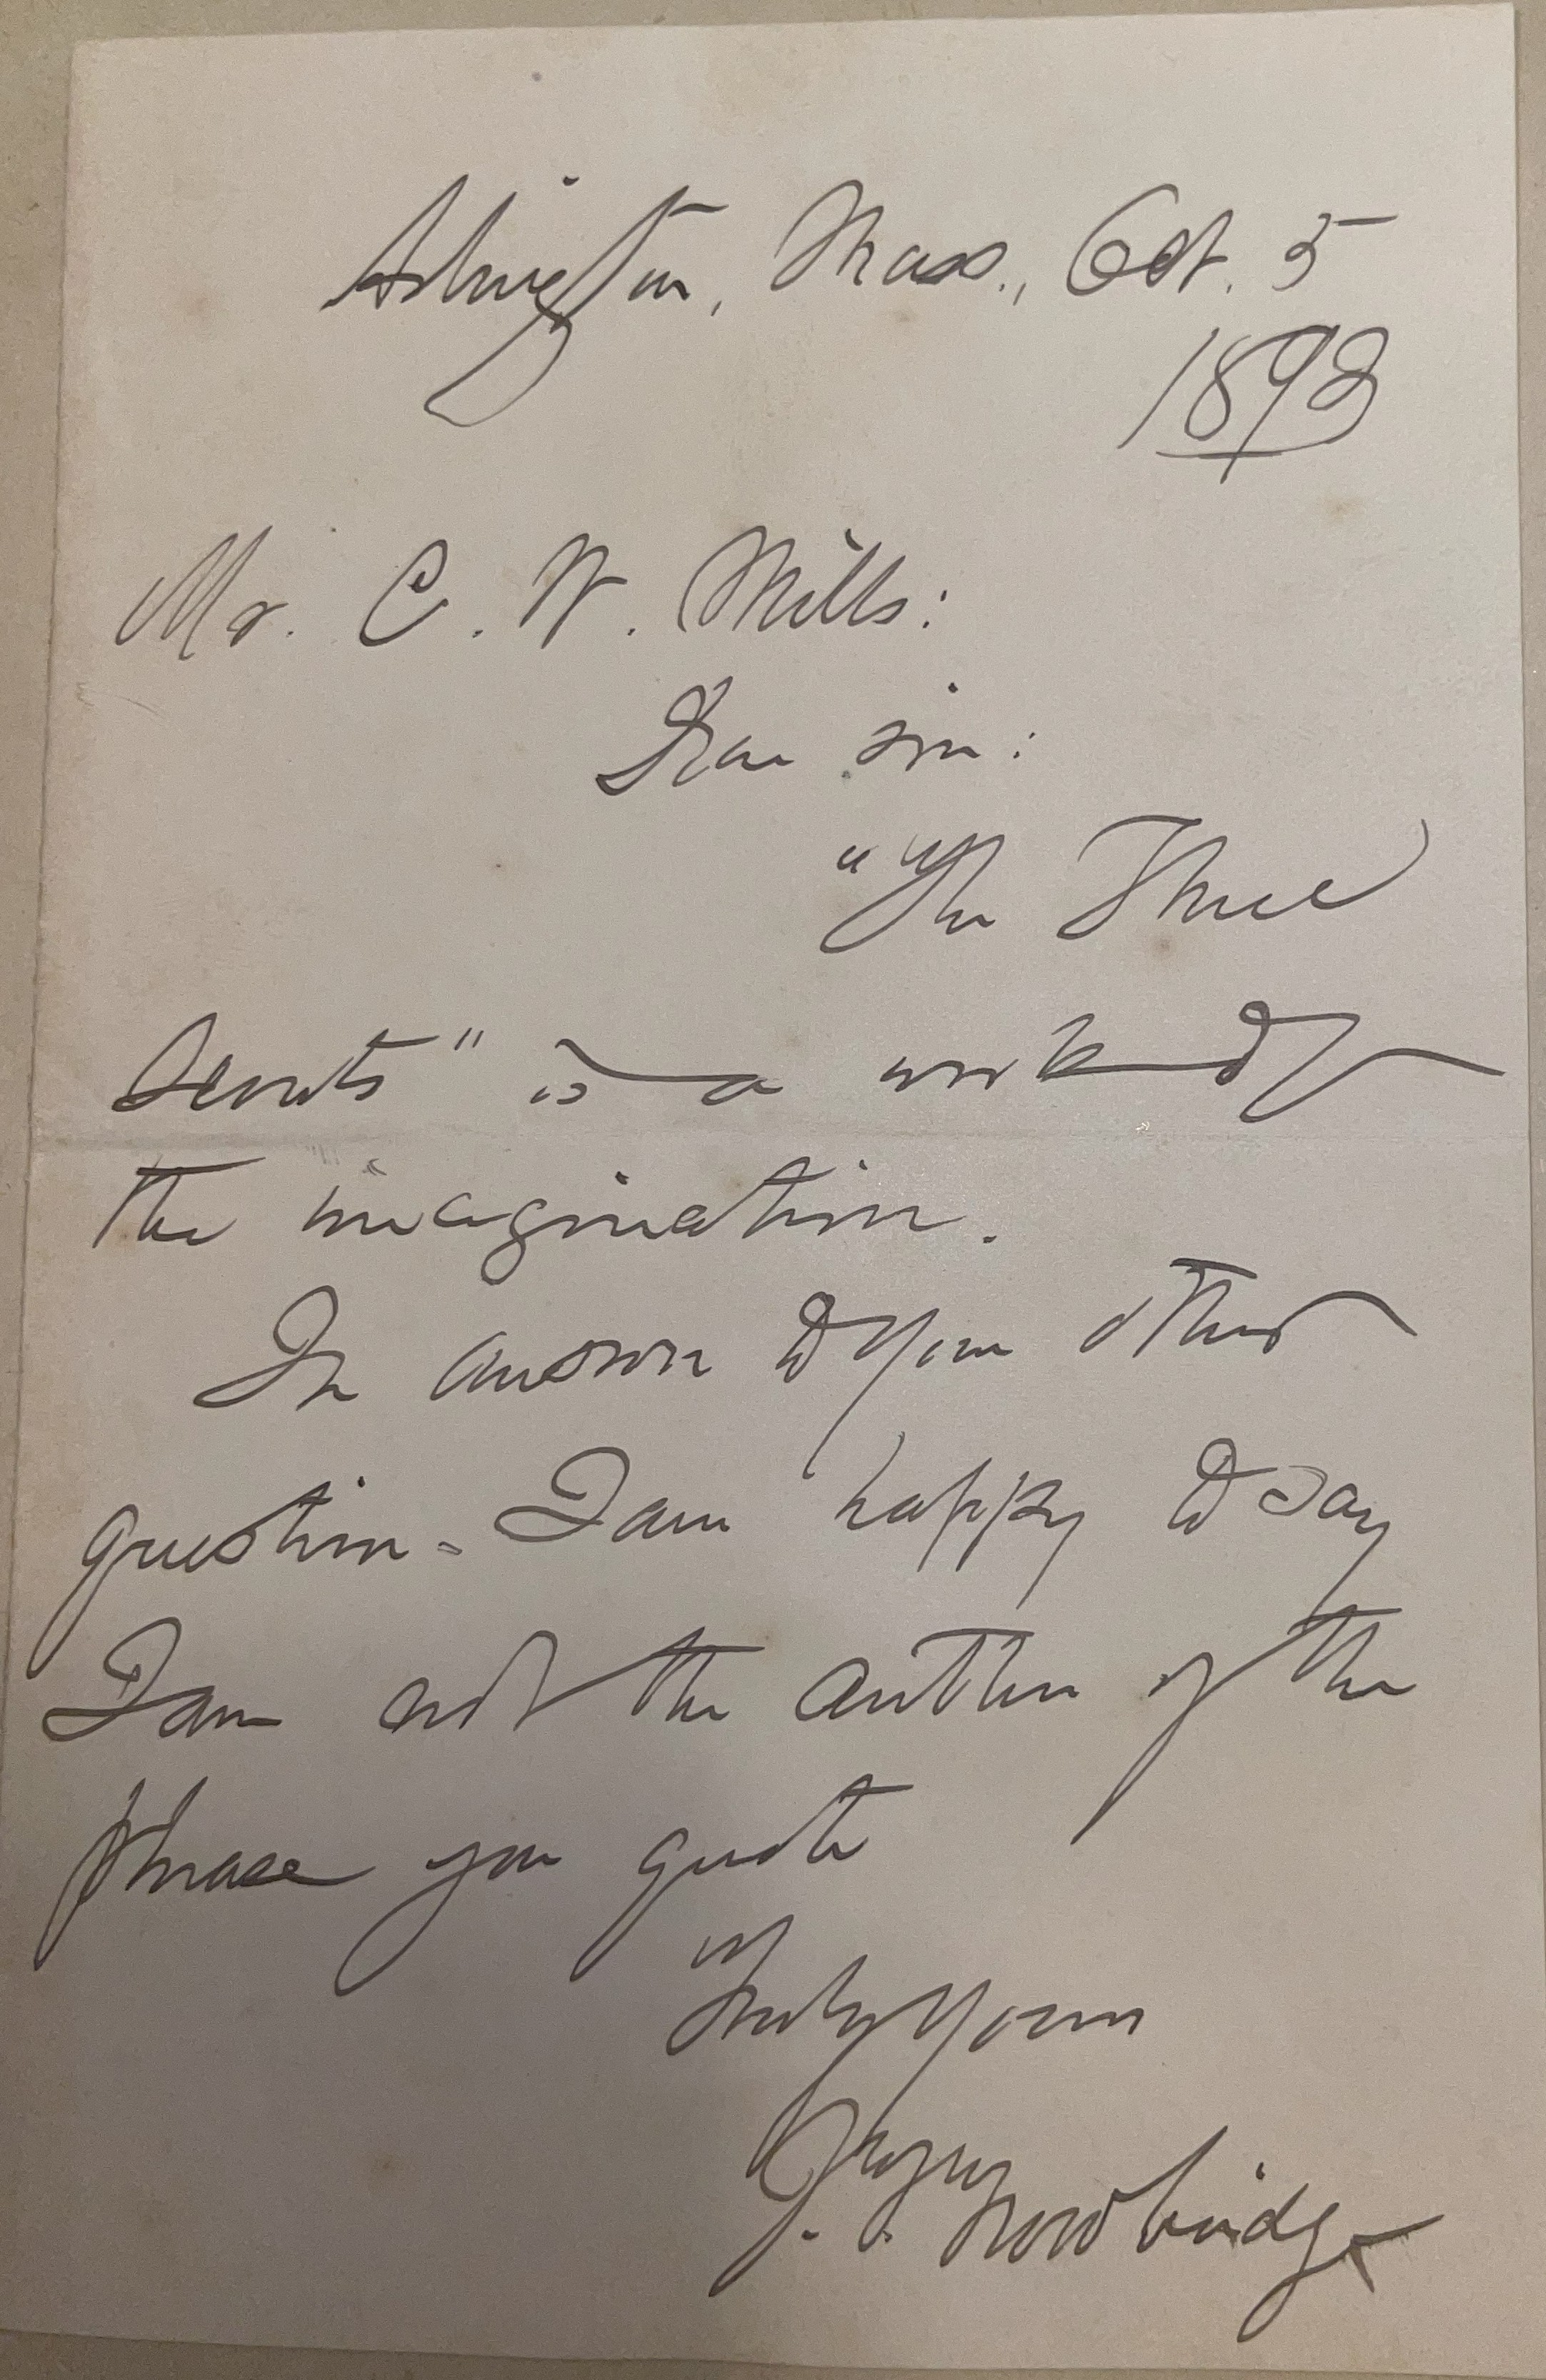 Arlington, Mass., Oct. 5
1898
Mr. C. W. Mills:
Dear sir:
"The Three
Scouts" is a work of
the imagination.
In answer to your other
question - I am happy to say
I am not the author of the
phrase you quote
Truly Yours
J. T. Trowbridge